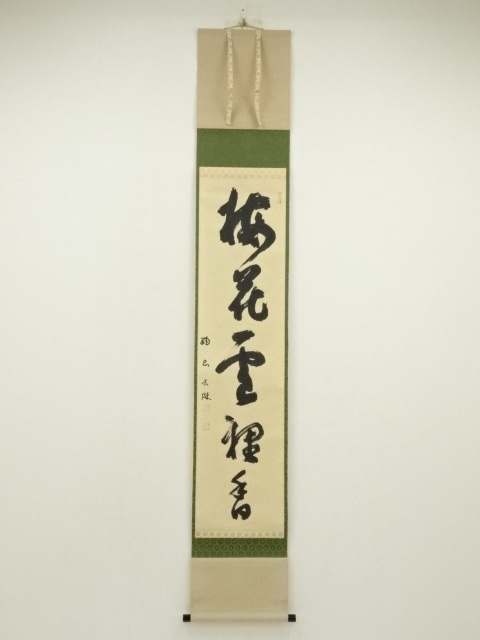 梅花雪裡香